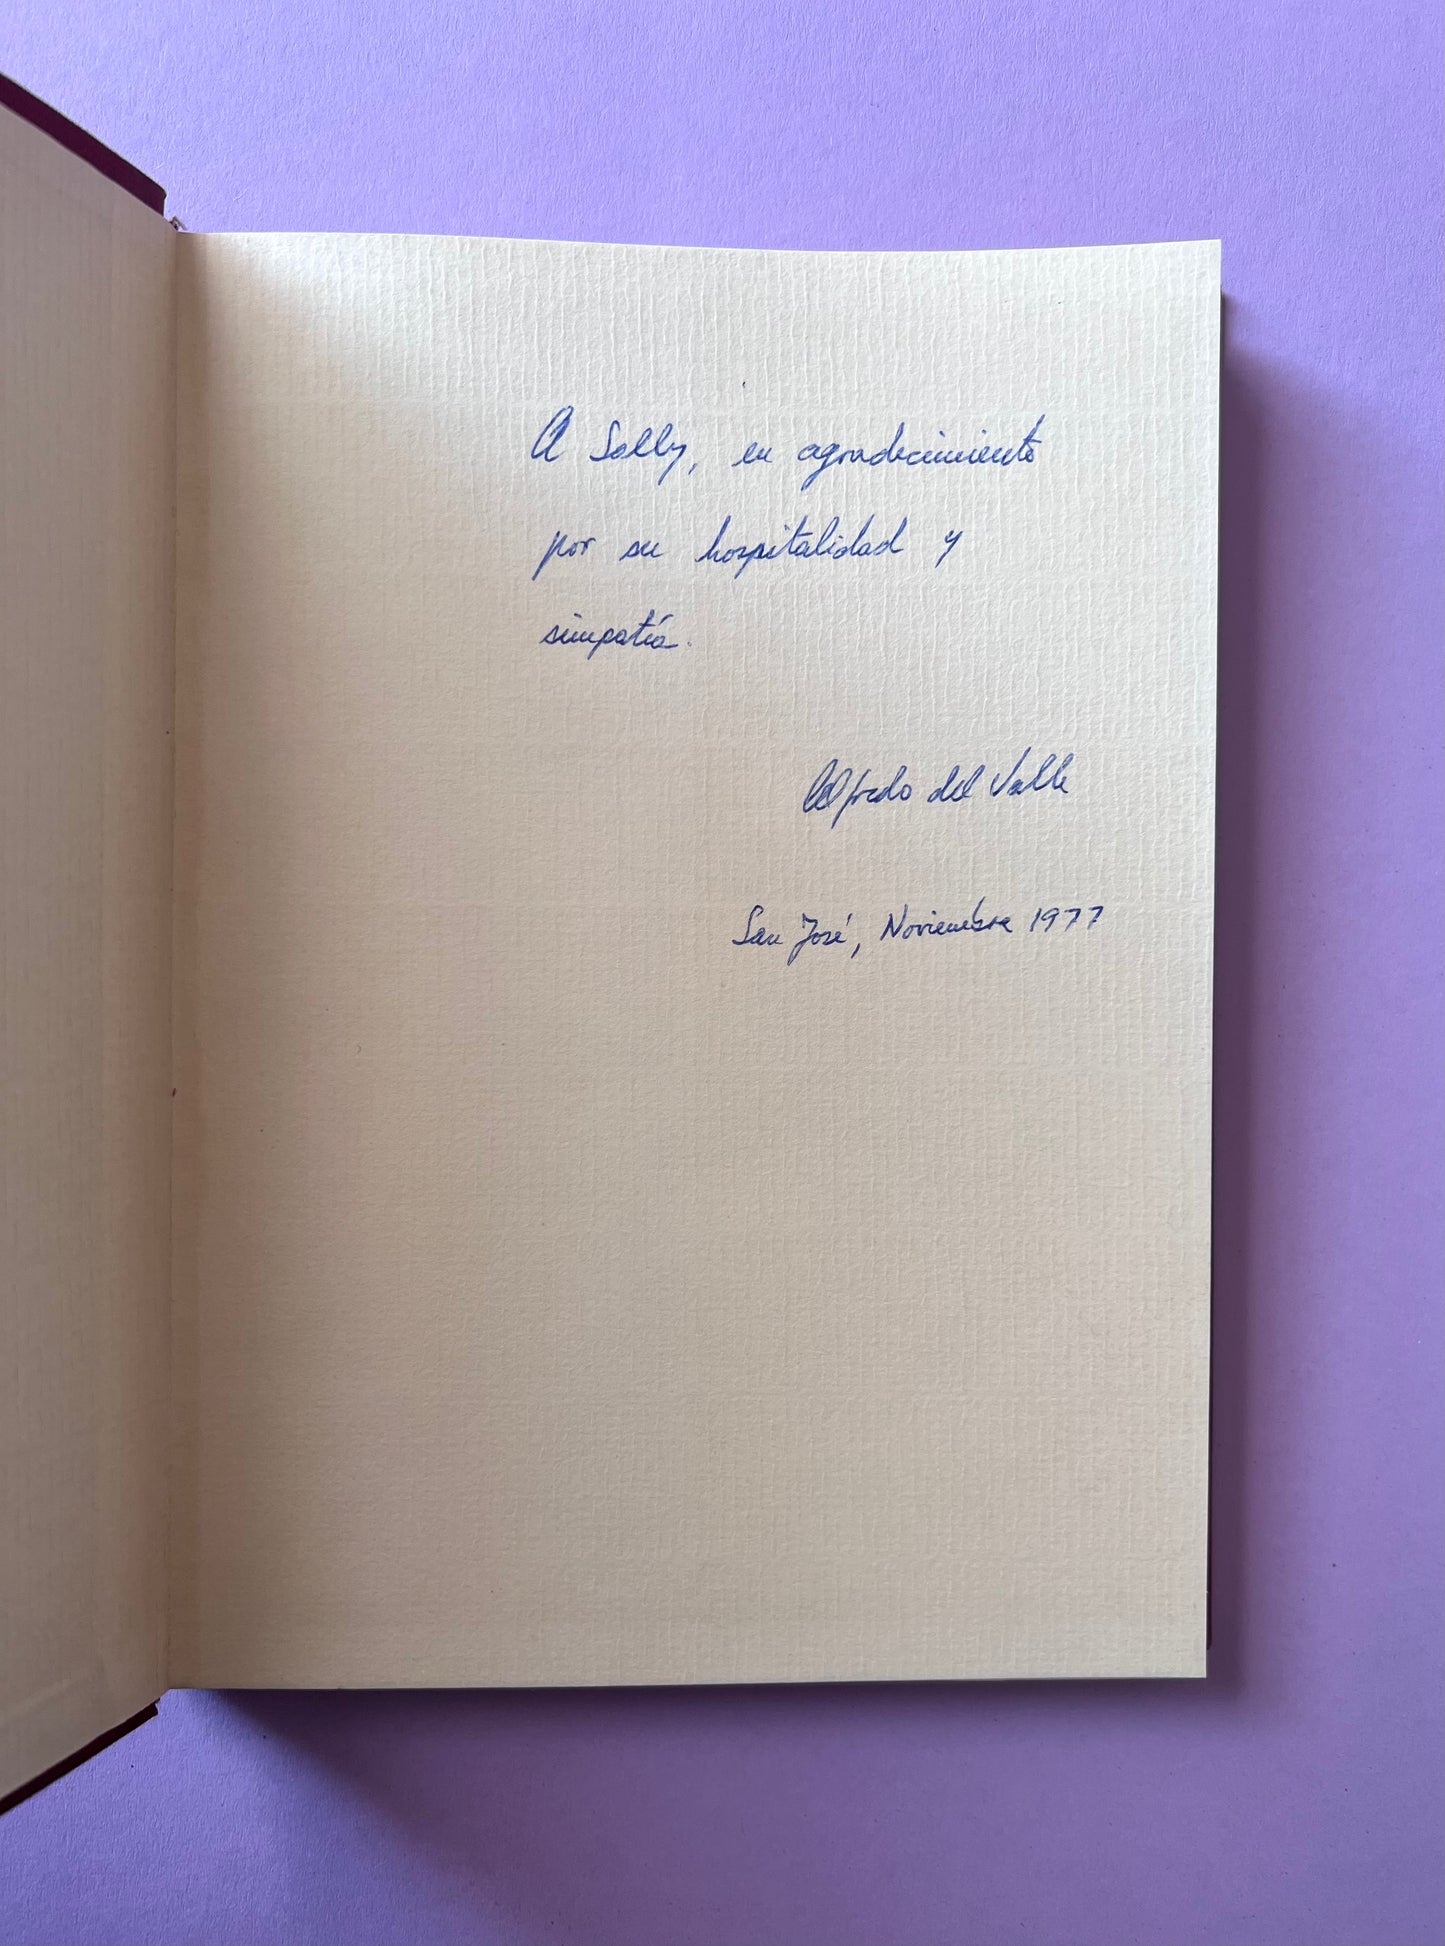 A Sally, en agradecimiento
por su hospitalidad y
simpatía.
Alfredo del Valle
San José, Noviembre 1977